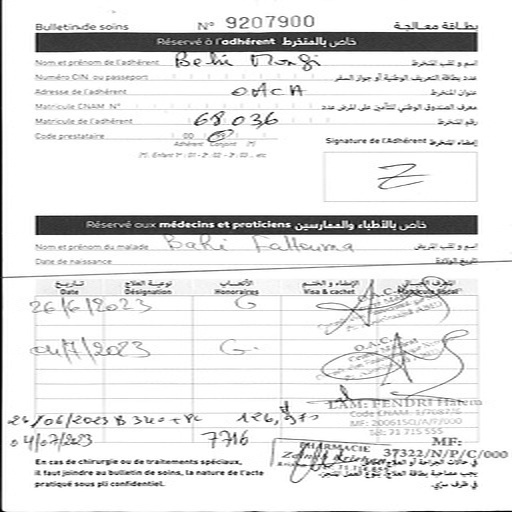 Bulletin de soins N° 9207900 بطاقة معالجة
Réservé à l'adhérent خاص بالمنخرط
Nom et prénom de l'adhérent Bahi Mongi اسم و لقب المنخرط
Numéro CIN ou passeport عدد بطاقة التعريف الوطنية أو جواز السفر
Adresse de l'adhérent OACA عنوان المنخرط
Matricule CNAM N° معرف الصندوق الوطني للتأمين على المرض عدد
Matricule de l'adhérent 68036 رقم المنخرط
Code prestataire 00
Adhérent Conjoint (*)
(*). Enfant 1er : 01 - 2e : 02 - 3e : 03... etc
Signature de l'Adhérent إمضاء المنخرط
Réservé aux médecins et praticiens خاص بالأطباء والممارسين
Nom et prénom du malade Bahi Fattouma اسم و لقب المريض
Date de naissance تاريخ الولادة
تاريخ نوعية العلاج الأتعاب الإمضاء و الختم
Date Désignation Honoraires Visa & cachet
26/6/2023 G
04/7/2023 G
O.A.C.A
LAM: FENDRI Hatem
Code CNAM
26/06/2023 B 340 + PC 126,975
Tel: 71 715 555
04/07/2023 7716
PHARMACIE
MF:
37322/N/P/C/000
En cas de chirurgie ou de traitements spéciaux,
il faut joindre au bulletin de soins, la nature de l'acte
pratiqué sous pli confidentiel.
في حالات الجراحة أو العلاج
يجب مصاحبة بطاقة العلاج، بنوع العمل المنجز،
في ظرف سري.